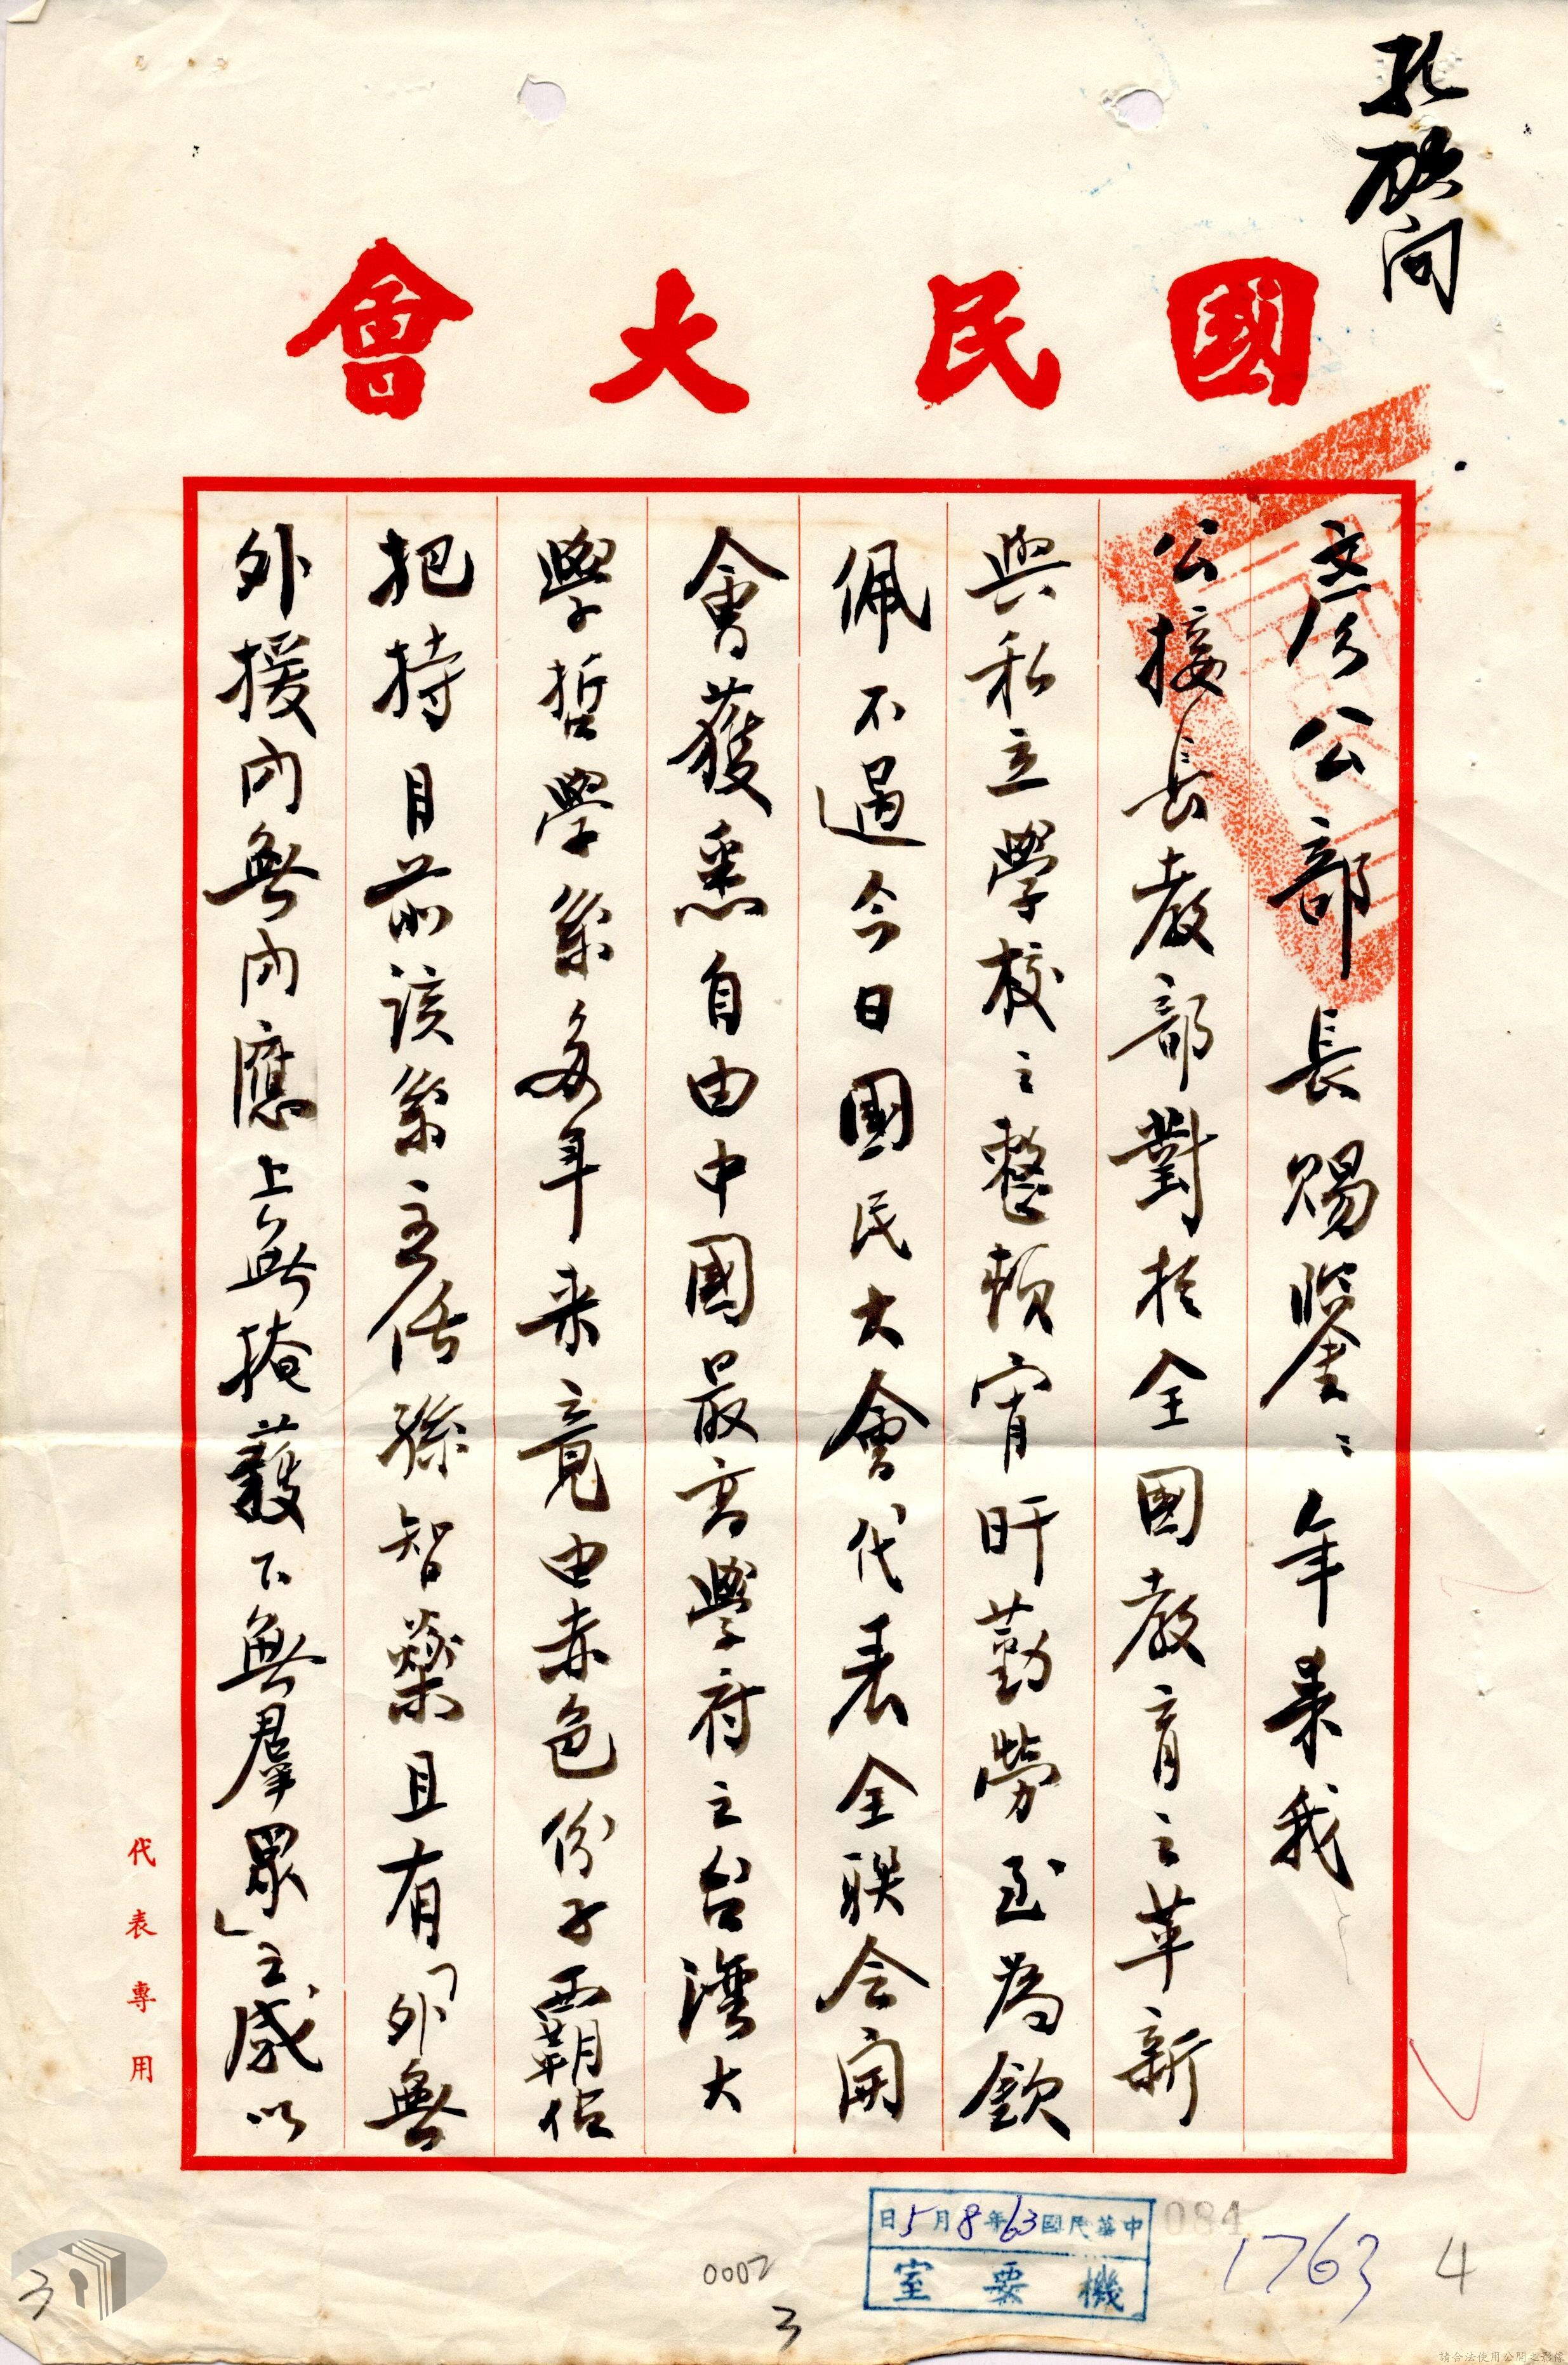 國民大會
彥公部長賜鑒：年來我
公接長教部對於全國教育之革新
與私立學校之整頓宵旰勤勞至為欽
佩不過今日國民大會代表全联会開
會獲悉自由中國最高學府之台灣大
學哲學系多年来竟由赤色份子霸佔
把持目前該系主任孫智燊且有「外無
外援內無內應上無掩護下無羣眾」之感以
代表專用
中華民國63年8月5日
機要室
084
1763
4
0002
3
3
請合法使用公開之影像